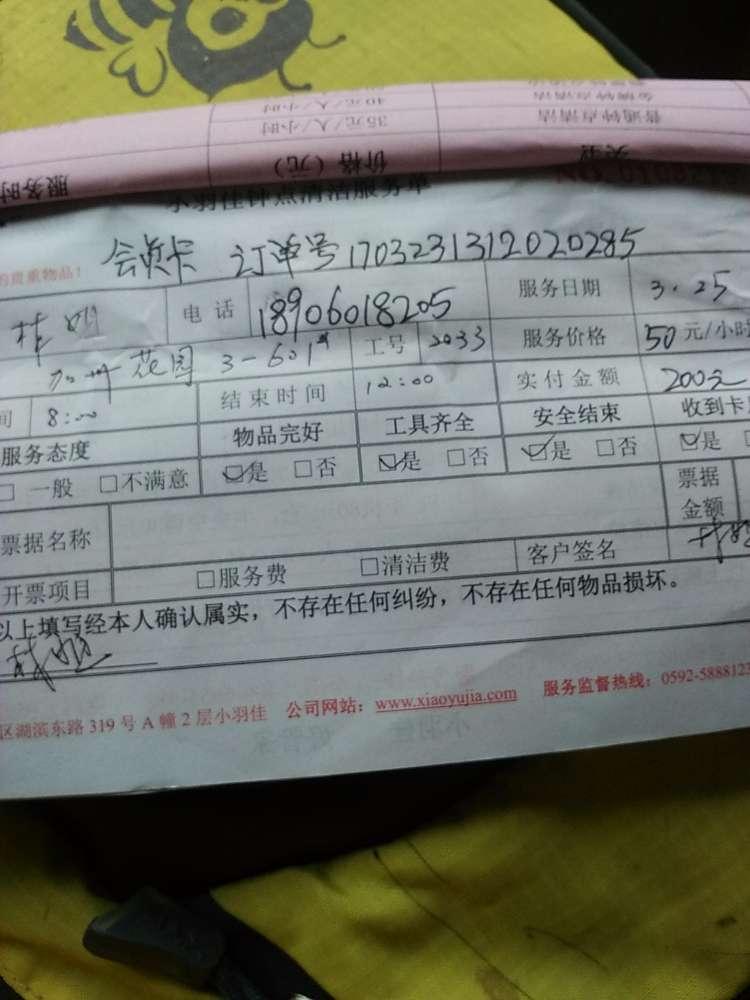 40元/人/小时 金牌钟点清洁
35元/人/小时 普通钟点清洁
服务时 价格（元）
小羽佳钟点清洁服务单
的贵重物品！ 会员卡 订单号 1703231312020285
桂姐 电话 18906018205 服务日期 3.25
加州花园 3-601 工号 2033 服务价格 50元/小时
间 8:00 结束时间 12:00 实付金额 200元
服务态度 物品完好 工具齐全 安全结束 收到卡
□一般 □不满意 ☑是 □否 ☑是 □否 ☑是 □否 ☑是
票据名称 票据金额
开票项目 □服务费 □清洁费 客户签名
以上填写经本人确认属实，不存在任何纠纷，不存在任何物品损坏。
区湖滨东路319号A幢2层小羽佳 公司网站：www.xiaoyujia.com 服务监督热线：0592-5888123